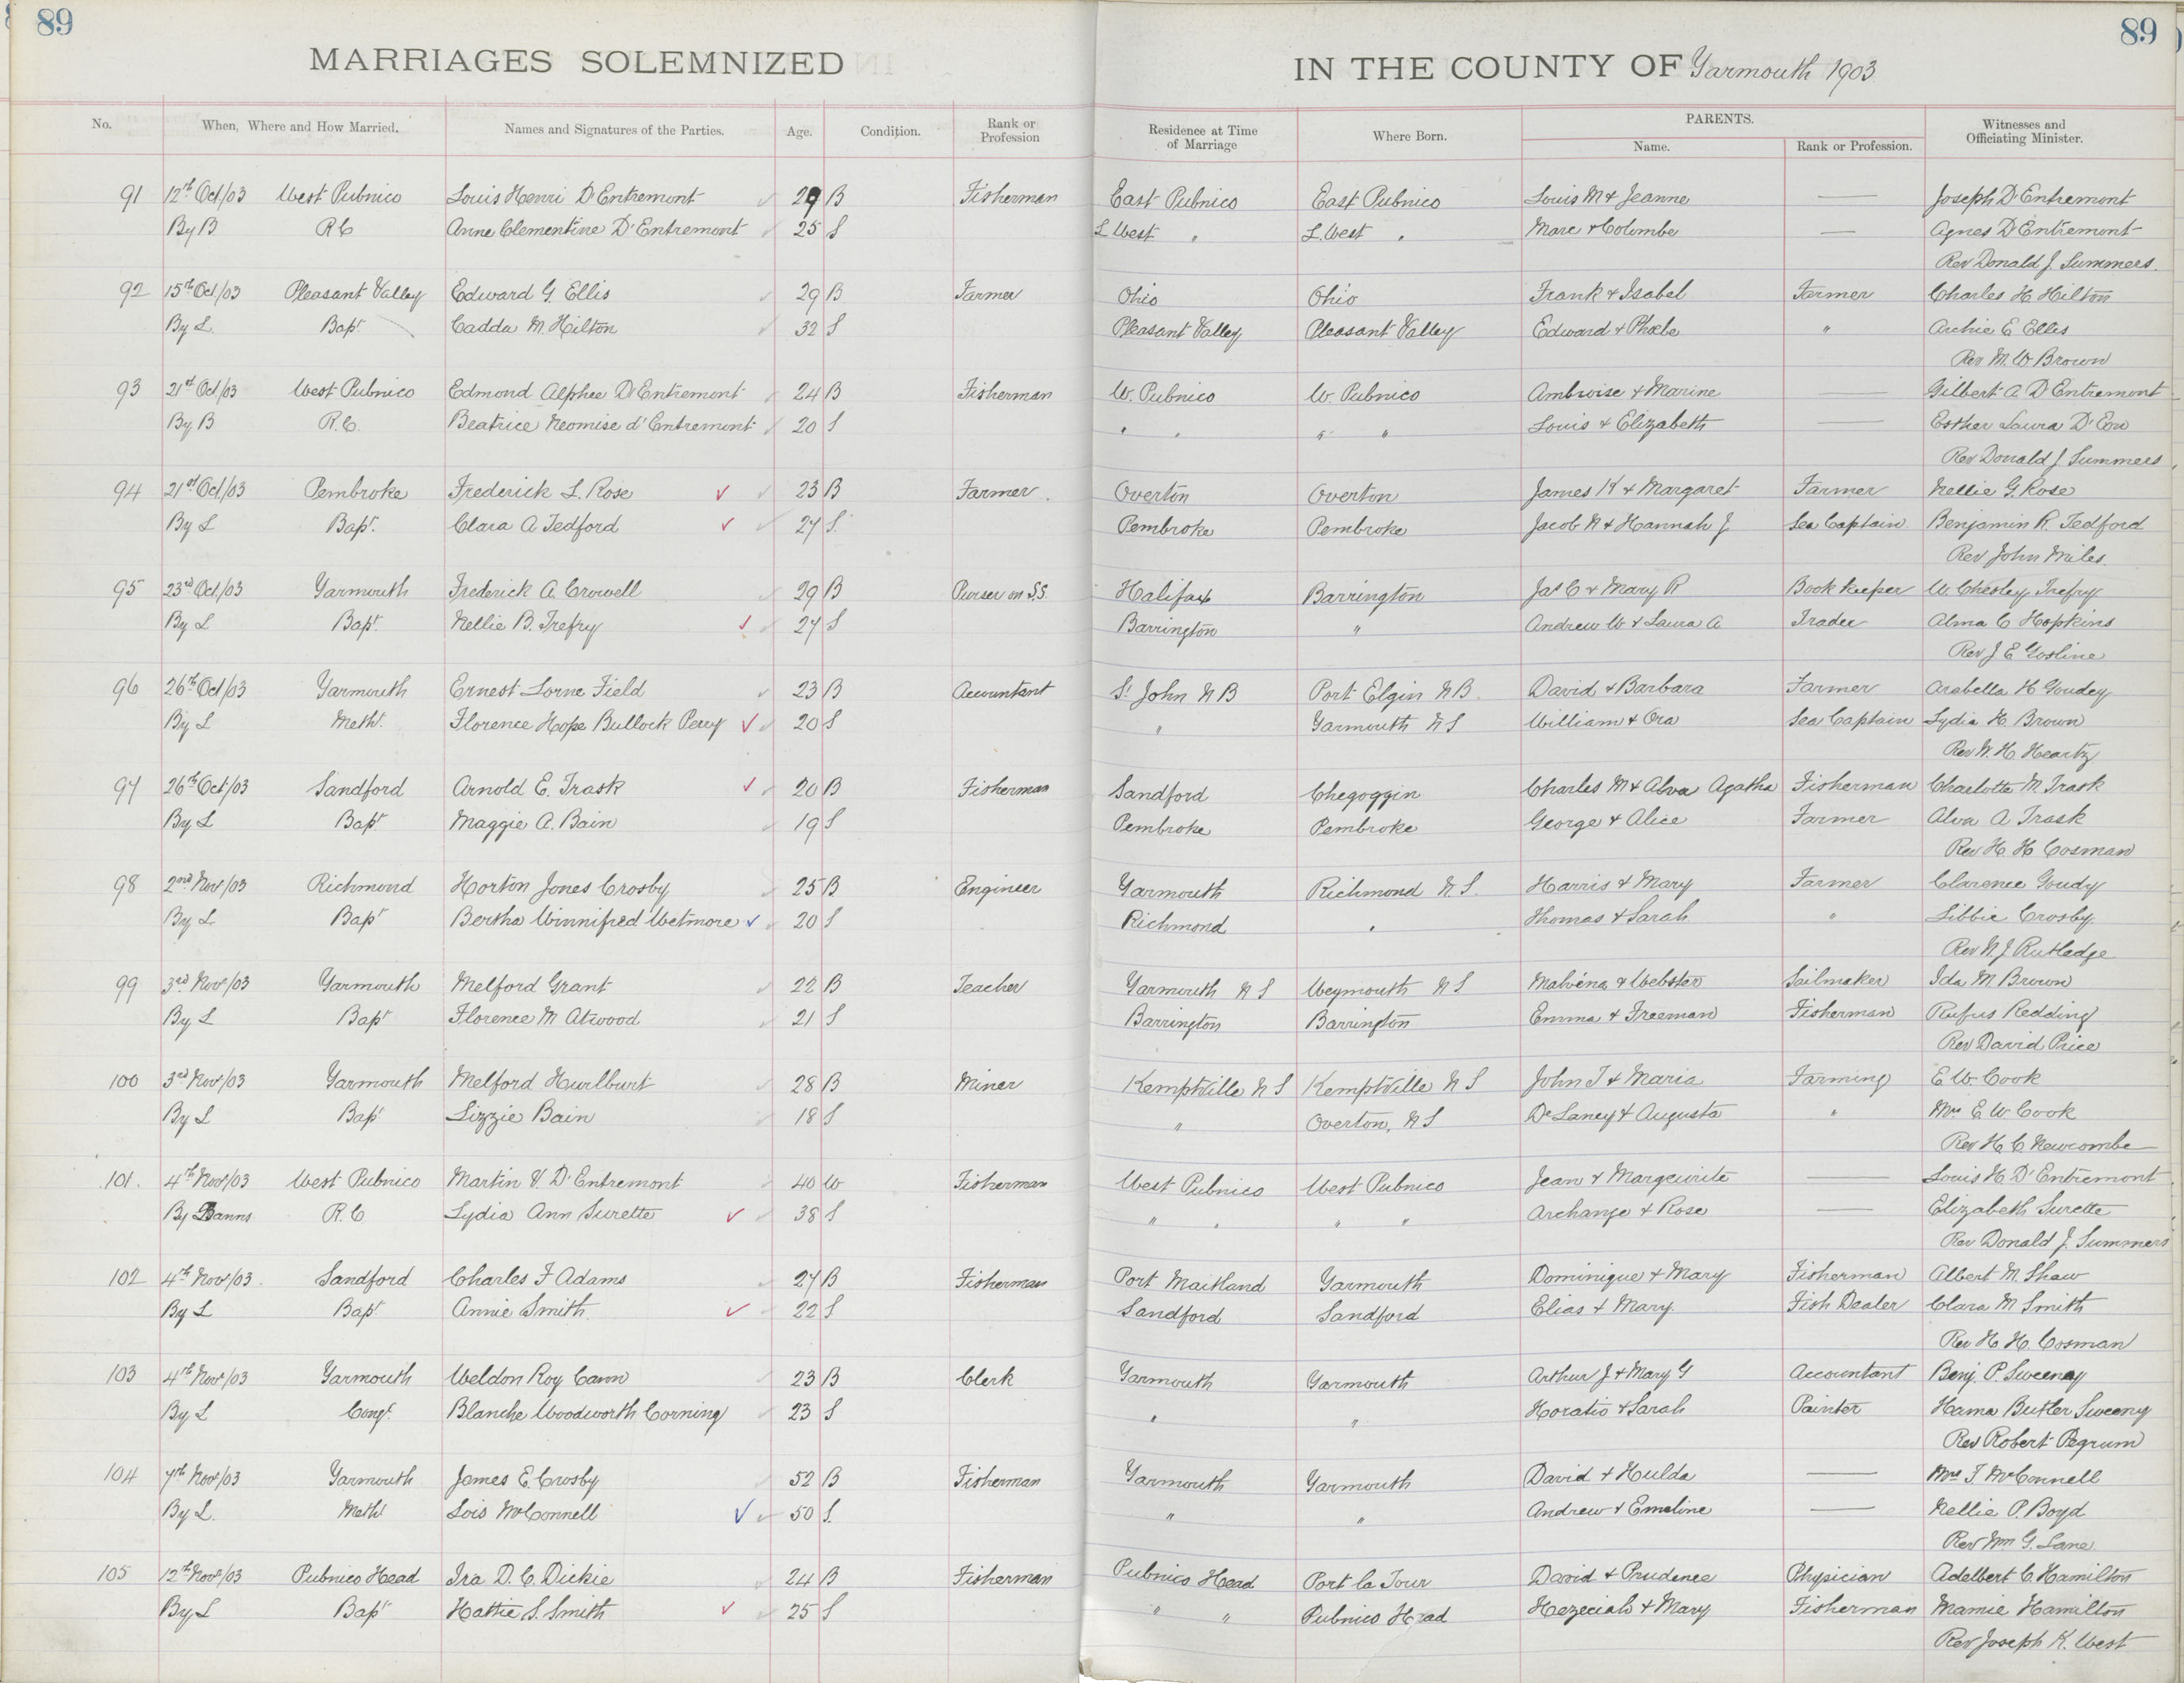 89
89
MARRIAGES SOLEMNIZED
IN THE COUNTY OF Yarmouth 1903
No. When, Where and How Married. Names and Signatures of the Parties. Age. Condition. Rank or Profession Residence at Time of Marriage Where Born. PARENTS. Name. Rank or Profession. Witnesses and Officiating Minister.
91 12th Oct/03 West Pubnico Louis Henri D'Entremont 29 B Fisherman East Pubnico East Pubnico Louis M & Jeanne — Joseph D'Entremont
By B R C Anne Clementine D'Entremont 25 S L West " L. West " Marc & Colombe — Agnes D'Entremont
Rev Donald J. Summers.
92 15th Oct/03 Pleasant Valley Edward G. Ellis 29 B Farmer Ohio Ohio Frank & Isabel Farmer Charles H Hilton
By L. Bapt Cadda M. Hilton 32 S Pleasant Valley Pleasant Valley Edward & Phœbe " Archie E Ellis
Rev M. W Brown
93 21st Oct/03 West Pubnico Edmond Alphee D'Entremont 24 B Fisherman W. Pubnico W. Pubnico Ambroise & Marine — Gilbert A D'Entremont
By B R.C. Beatrice Neomise d'Entremont 20 S " " " " Louis & Elizabeth — Esther Laura D'Eon
Rev Donald J Summers
94 21st Oct/03 Pembroke Frederick L. Rose 23 B Farmer. Overton Overton James K & Margaret Farmer Nellie G. Rose
By L Bapt. Clara A Tedford 27 S. Pembroke Pembroke Jacob N & Hannah J. Sea Captain Benjamin R. Tedford
Rev John Miles.
95 23rd Oct/03 Yarmouth Frederick A. Crowell 29 B Purser on S.S. Halifax Barrington Jas C & Mary R Book Keeper W. Chesley Trefry
By L Bapt. Nellie B. Trefry 27 S Barrington " Andrew W & Laura A Trader Alma C Hopkins
Rev J E Gosline
96 26th Oct/03 Yarmouth Ernest Lorne Field 23 B Accountant St John N B Port Elgin N B. David & Barbara Farmer Arabella H Goudey
By L Meth. Florence Hope Bullock Perry 20 S " Yarmouth N S William & Ora Sea Captain Lydia K. Brown
Rev W. H. Heartz
97 26th Oct/03 Sandford Arnold E. Trask 20 B Fisherman Sandford Chegoggin Charles M & Alva Agatha Fisherman Charlotte M. Trask
By L Bapt Maggie A. Bain 19 S Pembroke Pembroke George & Alice Farmer Alva A Trask
Rev H. H Cosman
98 2nd Nov/03 Richmond Horton Jones Crosby 25 B Engineer Yarmouth Richmond N.S. Harris & Mary Farmer Clarence Goudy
By L Bapt Bertha Winnifred Wetmore 20 S Richmond " Thomas & Sarah " Libbie Crosby.
Rev N. J Rutledge
99 3rd Nov/03 Yarmouth Melford Grant 22 B Teacher Yarmouth N S Weymouth N S Malvina & Webster Sailmaker Ida M Brown
By L Bapt Florence M Atwood 21 S Barrington Barrington Emma & Freeman Fisherman Rufus Redding
Rev David Price
100 3rd Nov/03 Yarmouth Melford Hurlburt 28 B Miner Kemptville N S Kemptville N S John T & Maria Farming E W. Cook
By L Bapt Lizzie Bain 18 S " Overton, N S De Laney & Augusta " Mrs E W Cook
Rev H. C Newcombe
101. 4th Nov/03 West Pubnico Martin V. D'Entremont 40 W Fisherman West Pubnico West Pubnico Jean & Margeurite — Louis H D'Entremont
By Banns R. C Lydia Ann Surette 38 S " " " " Archange & Rose — Elizabeth Surette
Rev Donald J. Summers
102 4th Nov/03. Sandford Charles F Adams 27 B Fisherman Port Maitland Yarmouth Dominique & Mary Fisherman Albert M. Shaw
By L Bapt Annie Smith. 22 S Sandford Sandford Elias & Mary. Fish Dealer Clara M Smith
Rev H. H. Cosman
103 4th Nov/03 Yarmouth Weldon Roy Cann 23 B Clerk Yarmouth Yarmouth Arthur J & Mary G Accountant Benj. P. Sweeney
By L Congl. Blanche Woodworth Corning 23 S " " Horatio & Sarah Painter Hama Butler Sweeny
Rev Robert Pegrum
104 7th Nov/03 Yarmouth James E. Crosby 52 B Fisherman Yarmouth Yarmouth David & Hulda — Mrs F McConnell
By L. Meth Lois McConnell 50 S. " " Andrew & Emeline — Nellie P. Boyd
Rev Wm G. Lane.
105 12th Nov/03 Pubnico Head Ira D. C. Dickie 24 B Fisherman Pubnico Head Port la Tour David & Prudence Physician Adelbert C Hamilton
By L Bapt Hattie S. Smith 25 S " " Pubnico Head Hezeciah & Mary Fisherman Mamie Hamilton
Rev Joseph K. West